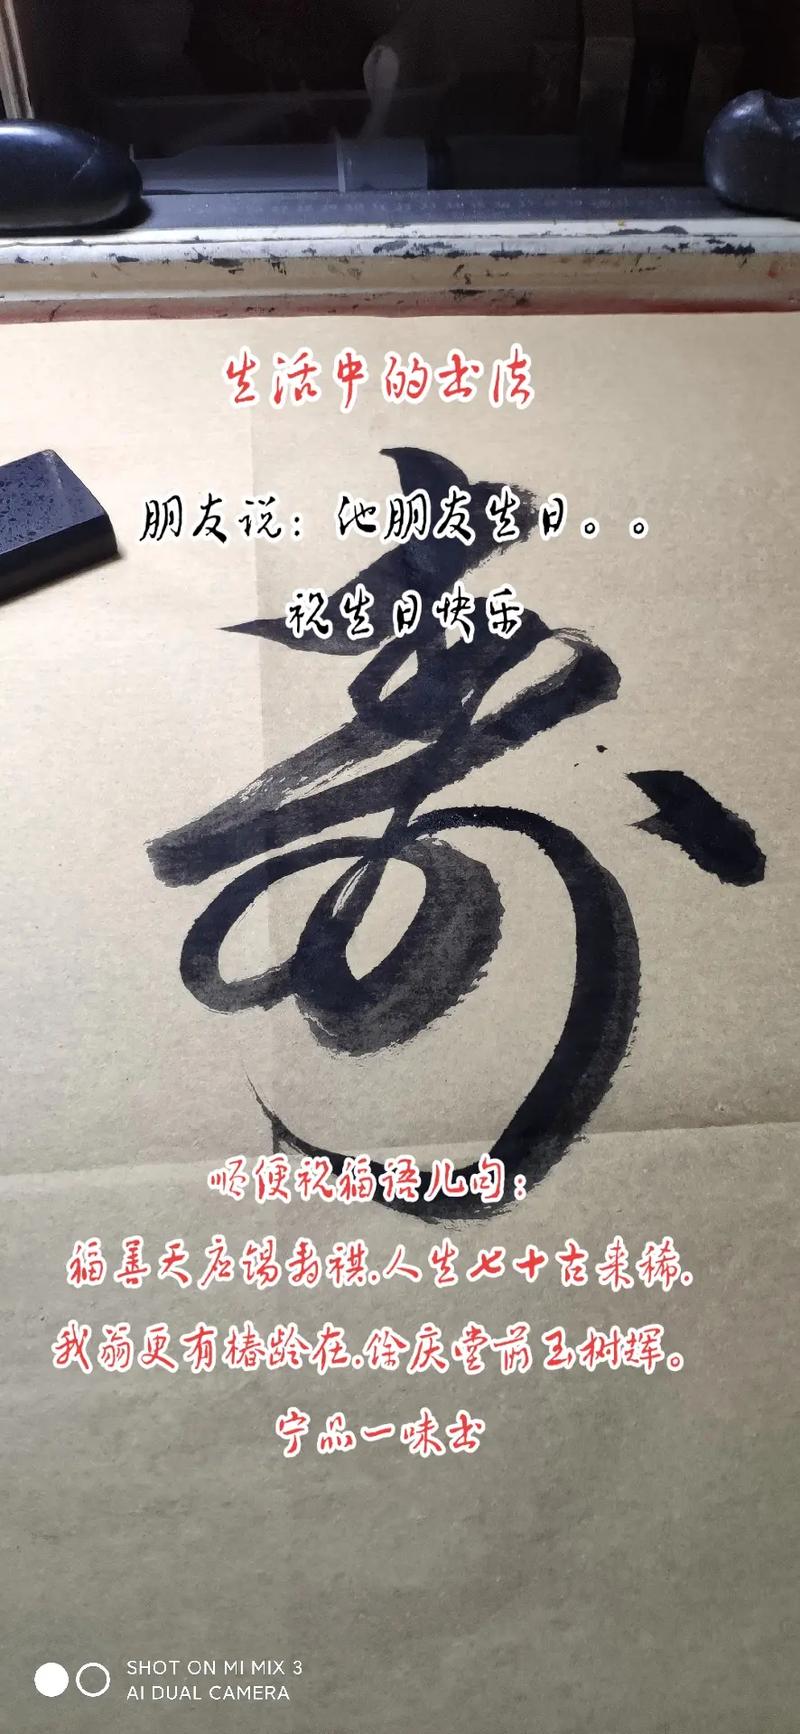 生活中的书法
朋友说：池朋友生日。。
祝生日快乐
寿
顺便祝福语几句：
福善天店锡寿祺.人生七十古来稀.
我翁更有椿龄在.馀庆堂前玉树辉。
宁品一味书
SHOT ON MI MIX 3
AI DUAL CAMERA